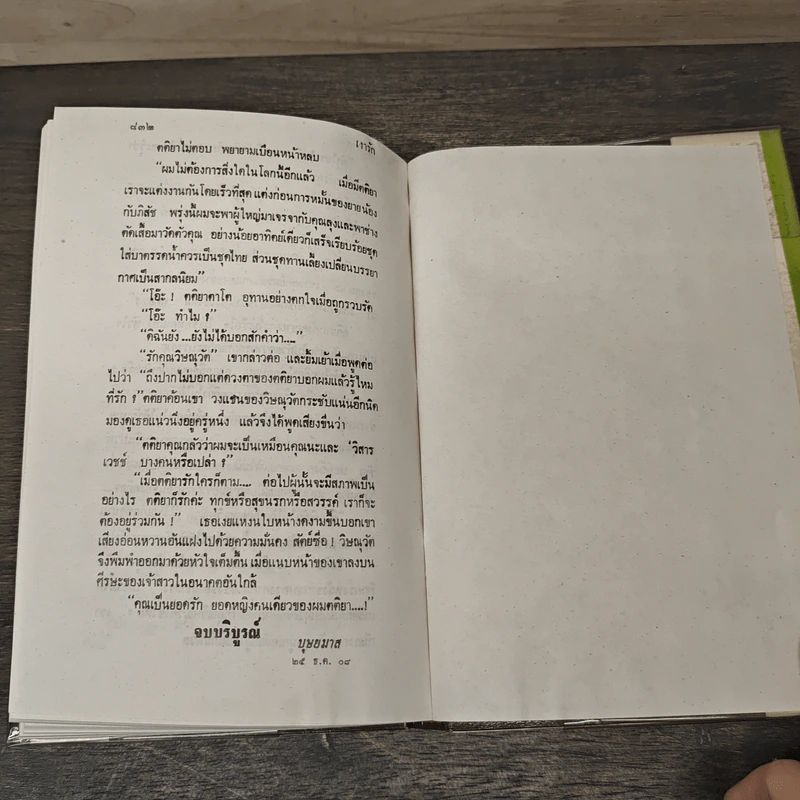 ๘๓๒
เงารัก
ตติยาไม่ตอบ พยายามเบือนหน้าหลบ
“ผมไม่ต้องการสิ่งใดในโลกนี้อีกแล้ว เมื่อมีตติยา
เราจะแต่งงานกันโดยเร็วที่สุด แต่งก่อนการหมั้นของยายน้อง
กับภิสัช พรุ่งนี้ผมจะพาผู้ใหญ่มาเจรจากับคุณลุงและพาช่าง
ตัดเสื้อมาวัดตัวคุณ อย่างน้อยอาทิตย์เดียวก็เสร็จเรียบร้อยชุด
ใส่บาตรรดน้ำควรเป็นชุดไทย ส่วนชุดทานเลี้ยงเปลี่ยนบรรยา
กาศเป็นสากลนิยม”
“โอ๊ะ ! ตติยาตาโต อุทานอย่างตกใจเมื่อถูกรวบรัด
“โอ๊ะ ทำไม ?”
“ดิฉันยัง...ยังไม่ได้บอกสักคำว่า....”
“รักคุณวิษณุวัต” เขากล่าวต่อ และยิ้มเย้าเมื่อพูดต่อ
ไปว่า “ถึงปากไม่บอกแต่ดวงตาของตติยาบอกผมแล้วรู้ไหม
ที่รัก ?” ตติยาค้อนเขา วงแขนของวิษณุวัตกระชับแน่นอีกนิด
มองดูเธอแน่วนิ่งอยู่ครู่หนึ่ง แล้วจึงได้พูดเสียงขื่นว่า
“ตติยาคุณกลัวว่าผมจะเป็นเหมือนคุณนะและ ‘วิสาร
เวชช์ บางคนหรือเปล่า ?”
“เมื่อตติยารักใครก็ตาม.... ต่อไปผู้นั้นจะมีสภาพเป็น
อย่างไร ตติยาก็รักค่ะ ทุกข์หรือสุขนรกหรือสวรรค์ เราก็จะ
ต้องอยู่ร่วมกัน !” เธอเงยแหงนใบหน้างดงามขึ้นบอกเขา
เสียงอ่อนหวานอันแฝงไปด้วยความมั่นคง สัตย์ซื่อ ! วิษณุวัต
จึงพึมพำออกมาด้วยหัวใจเต็มตื้น เมื่อแนบหน้าของเขาลงบน
ศีรษะของเจ้าสาวในอนาคตอันใกล้
“คุณเป็นยอดรัก ยอดหญิงคนเดียวของผมตติยา....!”
จบบริบูรณ์
บุษยมาส
๒๕ ธ.ค. ๐๘